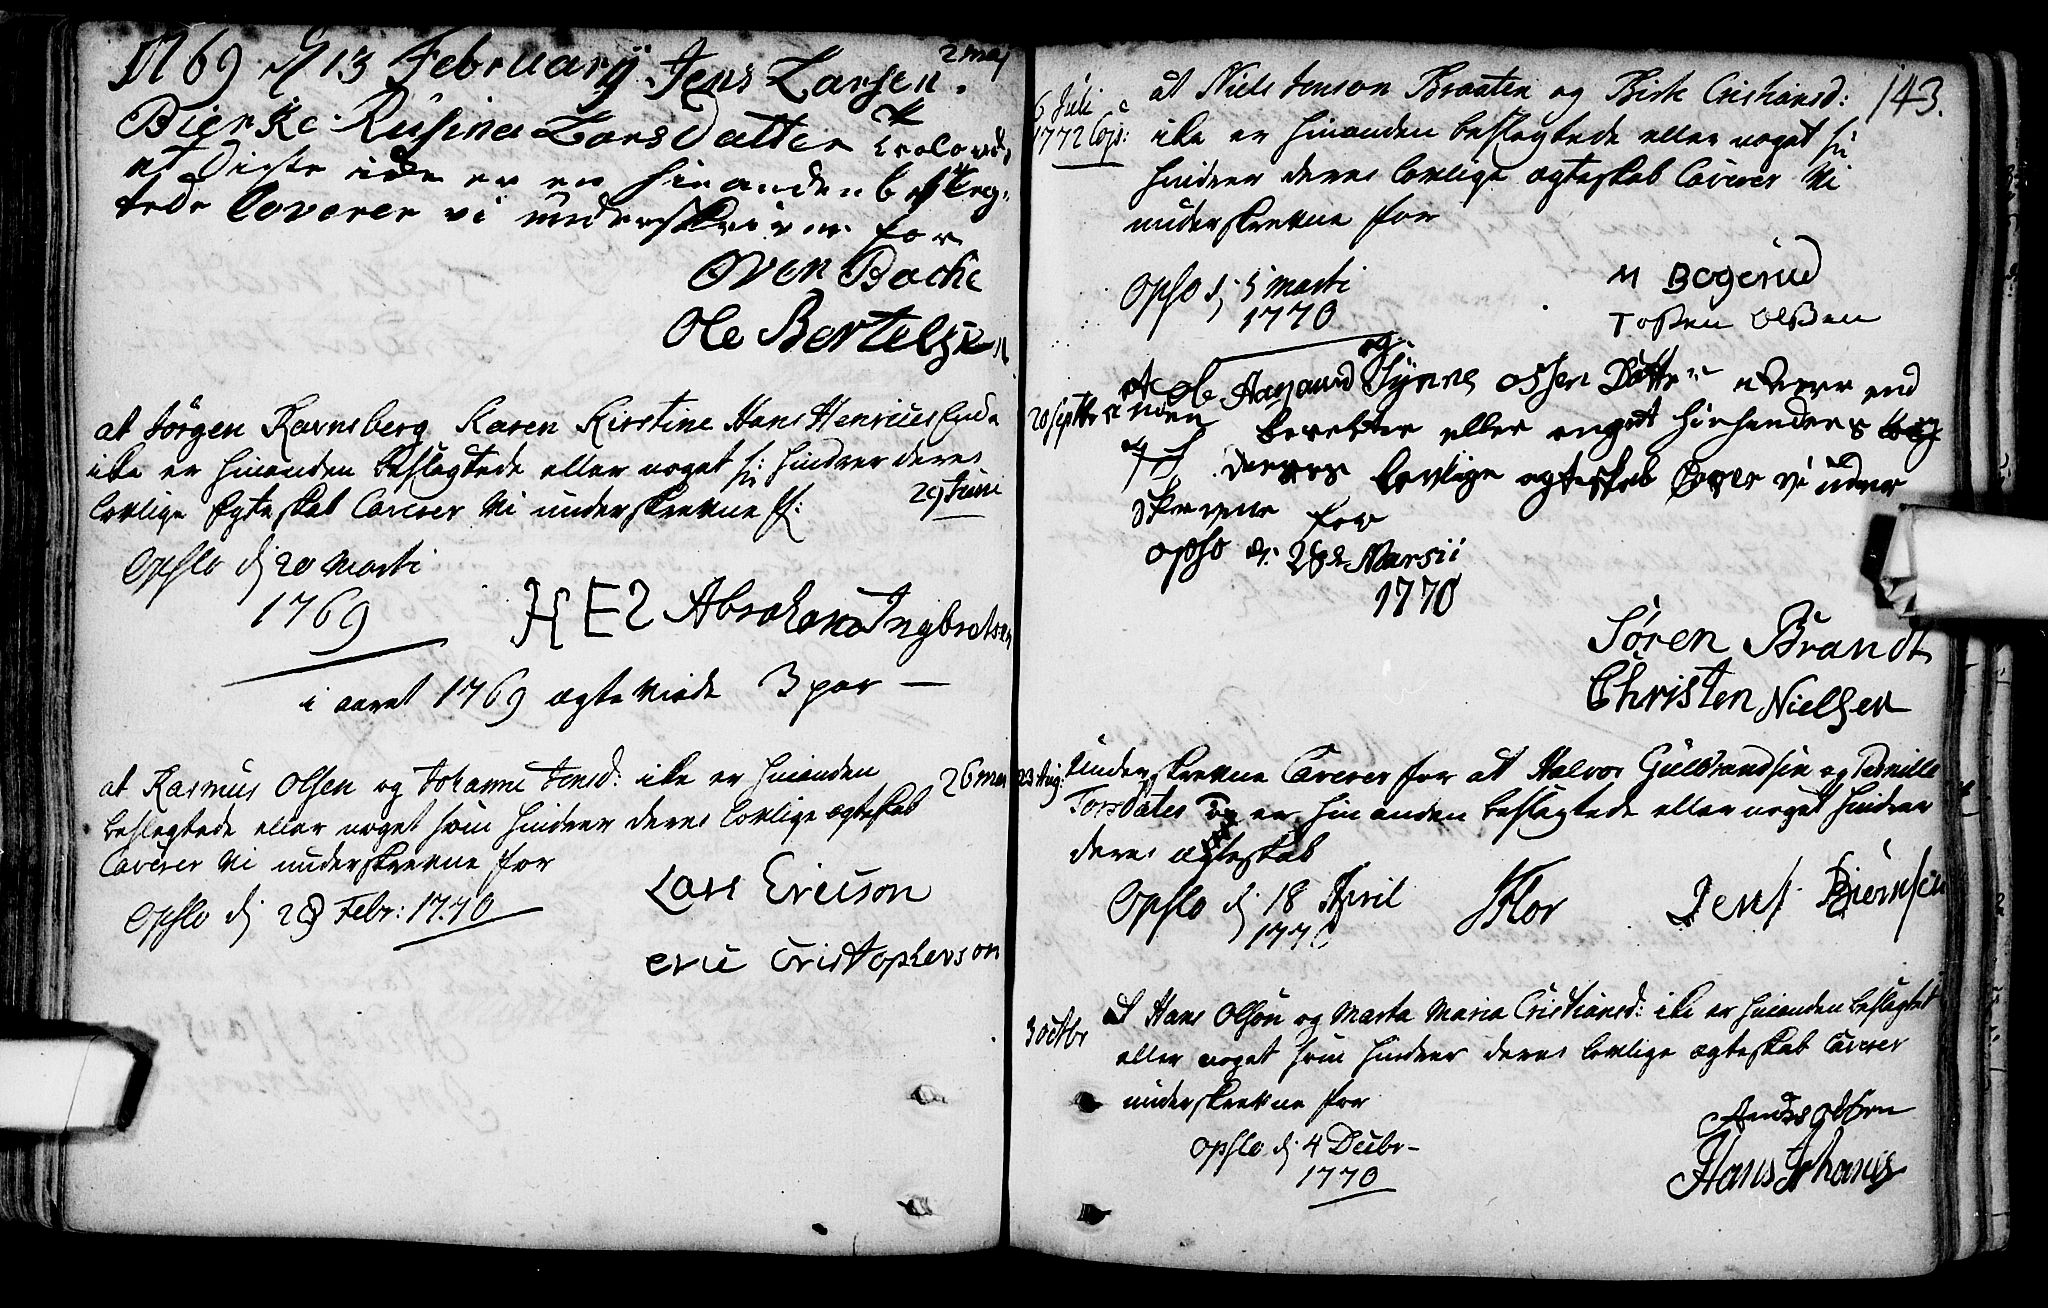 1769 d 13 February Jens Larsen. 2 maj
Bierke Rusina Lars Datter
at Diste ide er en hinanden besleg:
tede Caverer vi underskriver for
Oven Bache
Ole Bertelsen
at Jørgen Ravnsberg Karen Kirstine Hans Henrics
ike er hinanden beslegtede eller noget s: hindrer deres
lovlige Egteskab Caverer Vi underskrevne f: 29 Juni
Opslo dj 20 Marti
1769
HES Abraham Ingbretsen
i aaret 1769 ægteviede 3 par —
at Rasmus Olsen og Johanne Jensd: ike er hinanden 26 mar
beslegtede eller noget som hindrer deres lovlige ægteskab
Caverer Vi underskrevne for
Opslo dj 28 Febr: 1770
Lars Ericson
eric Cristopherson
143.
6 Juli
1772 Cop:
at Niels Jenson Braaten og Birte Cristiansd:
ike er hinanden beslegtede eller noget s:
hindrer deres lovlige ægteskab Caverer Vi
underskrevne for
Opslo dj 5 Marti
1770
M Bogerud
Tosten Olssen
at Ole Aagaard og Synne Ossen Datter
20 Septbr
beretter eller noget hinhenders
deres lovlige ægteskab Caver vi under
skrevene for
opslo d: 28 de Marsii
1770
Søren Brandt
Christen Nielsen
23 Aug: Underskrevne Caverer for at Halvor Gulbrandsen og Pernille
Torsdater er hinanden beslegtede eller noget hindrer
deres ægteskab
Opslo dj 18 April
1770
Flor
Jens Biørnsen
3 octbr
at Hans Olson og Marta Maria Cristiansd: ike er hinanden beslegtet
eller noget som hindrer deres lovlige ægteskab Caverer
underskrevne for
Opslo dj 4 Decbr
1770
Anders Olsen
Hans Johans